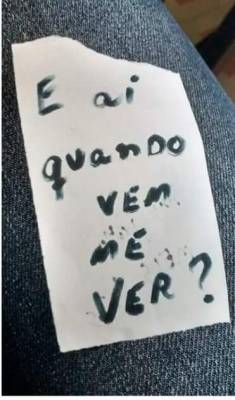 E ai
quando
VEM
ME
VER?